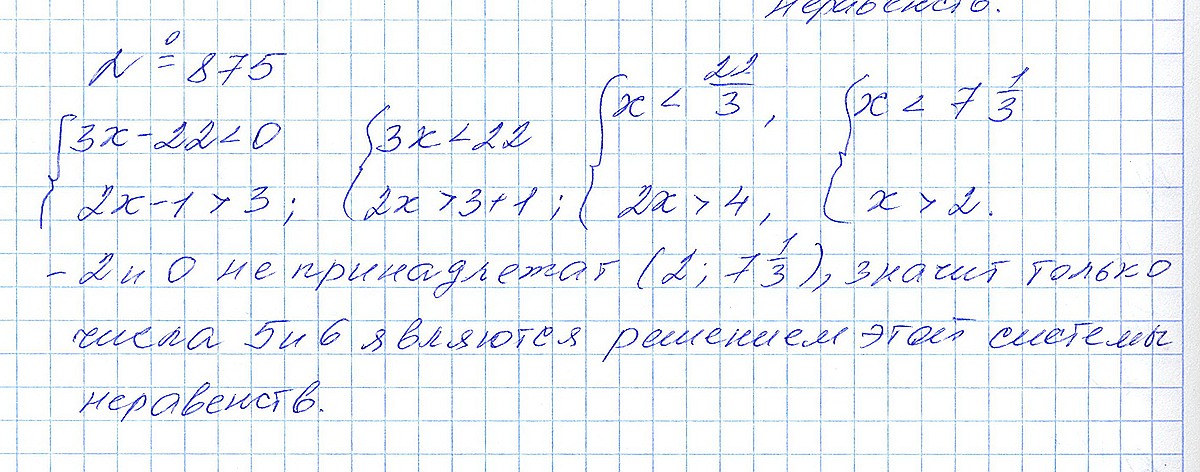 неравенств.
№ 875
{3x-22<0 {3x<22 {x < 22/3, {x < 7 1/3
{2x-1>3; {2x>3+1; {2x>4, {x>2.
-2 и 0 не принадлежат (2; 7 1/3), значит только
числа 5 и 6 являются решением этой системы
неравенств.